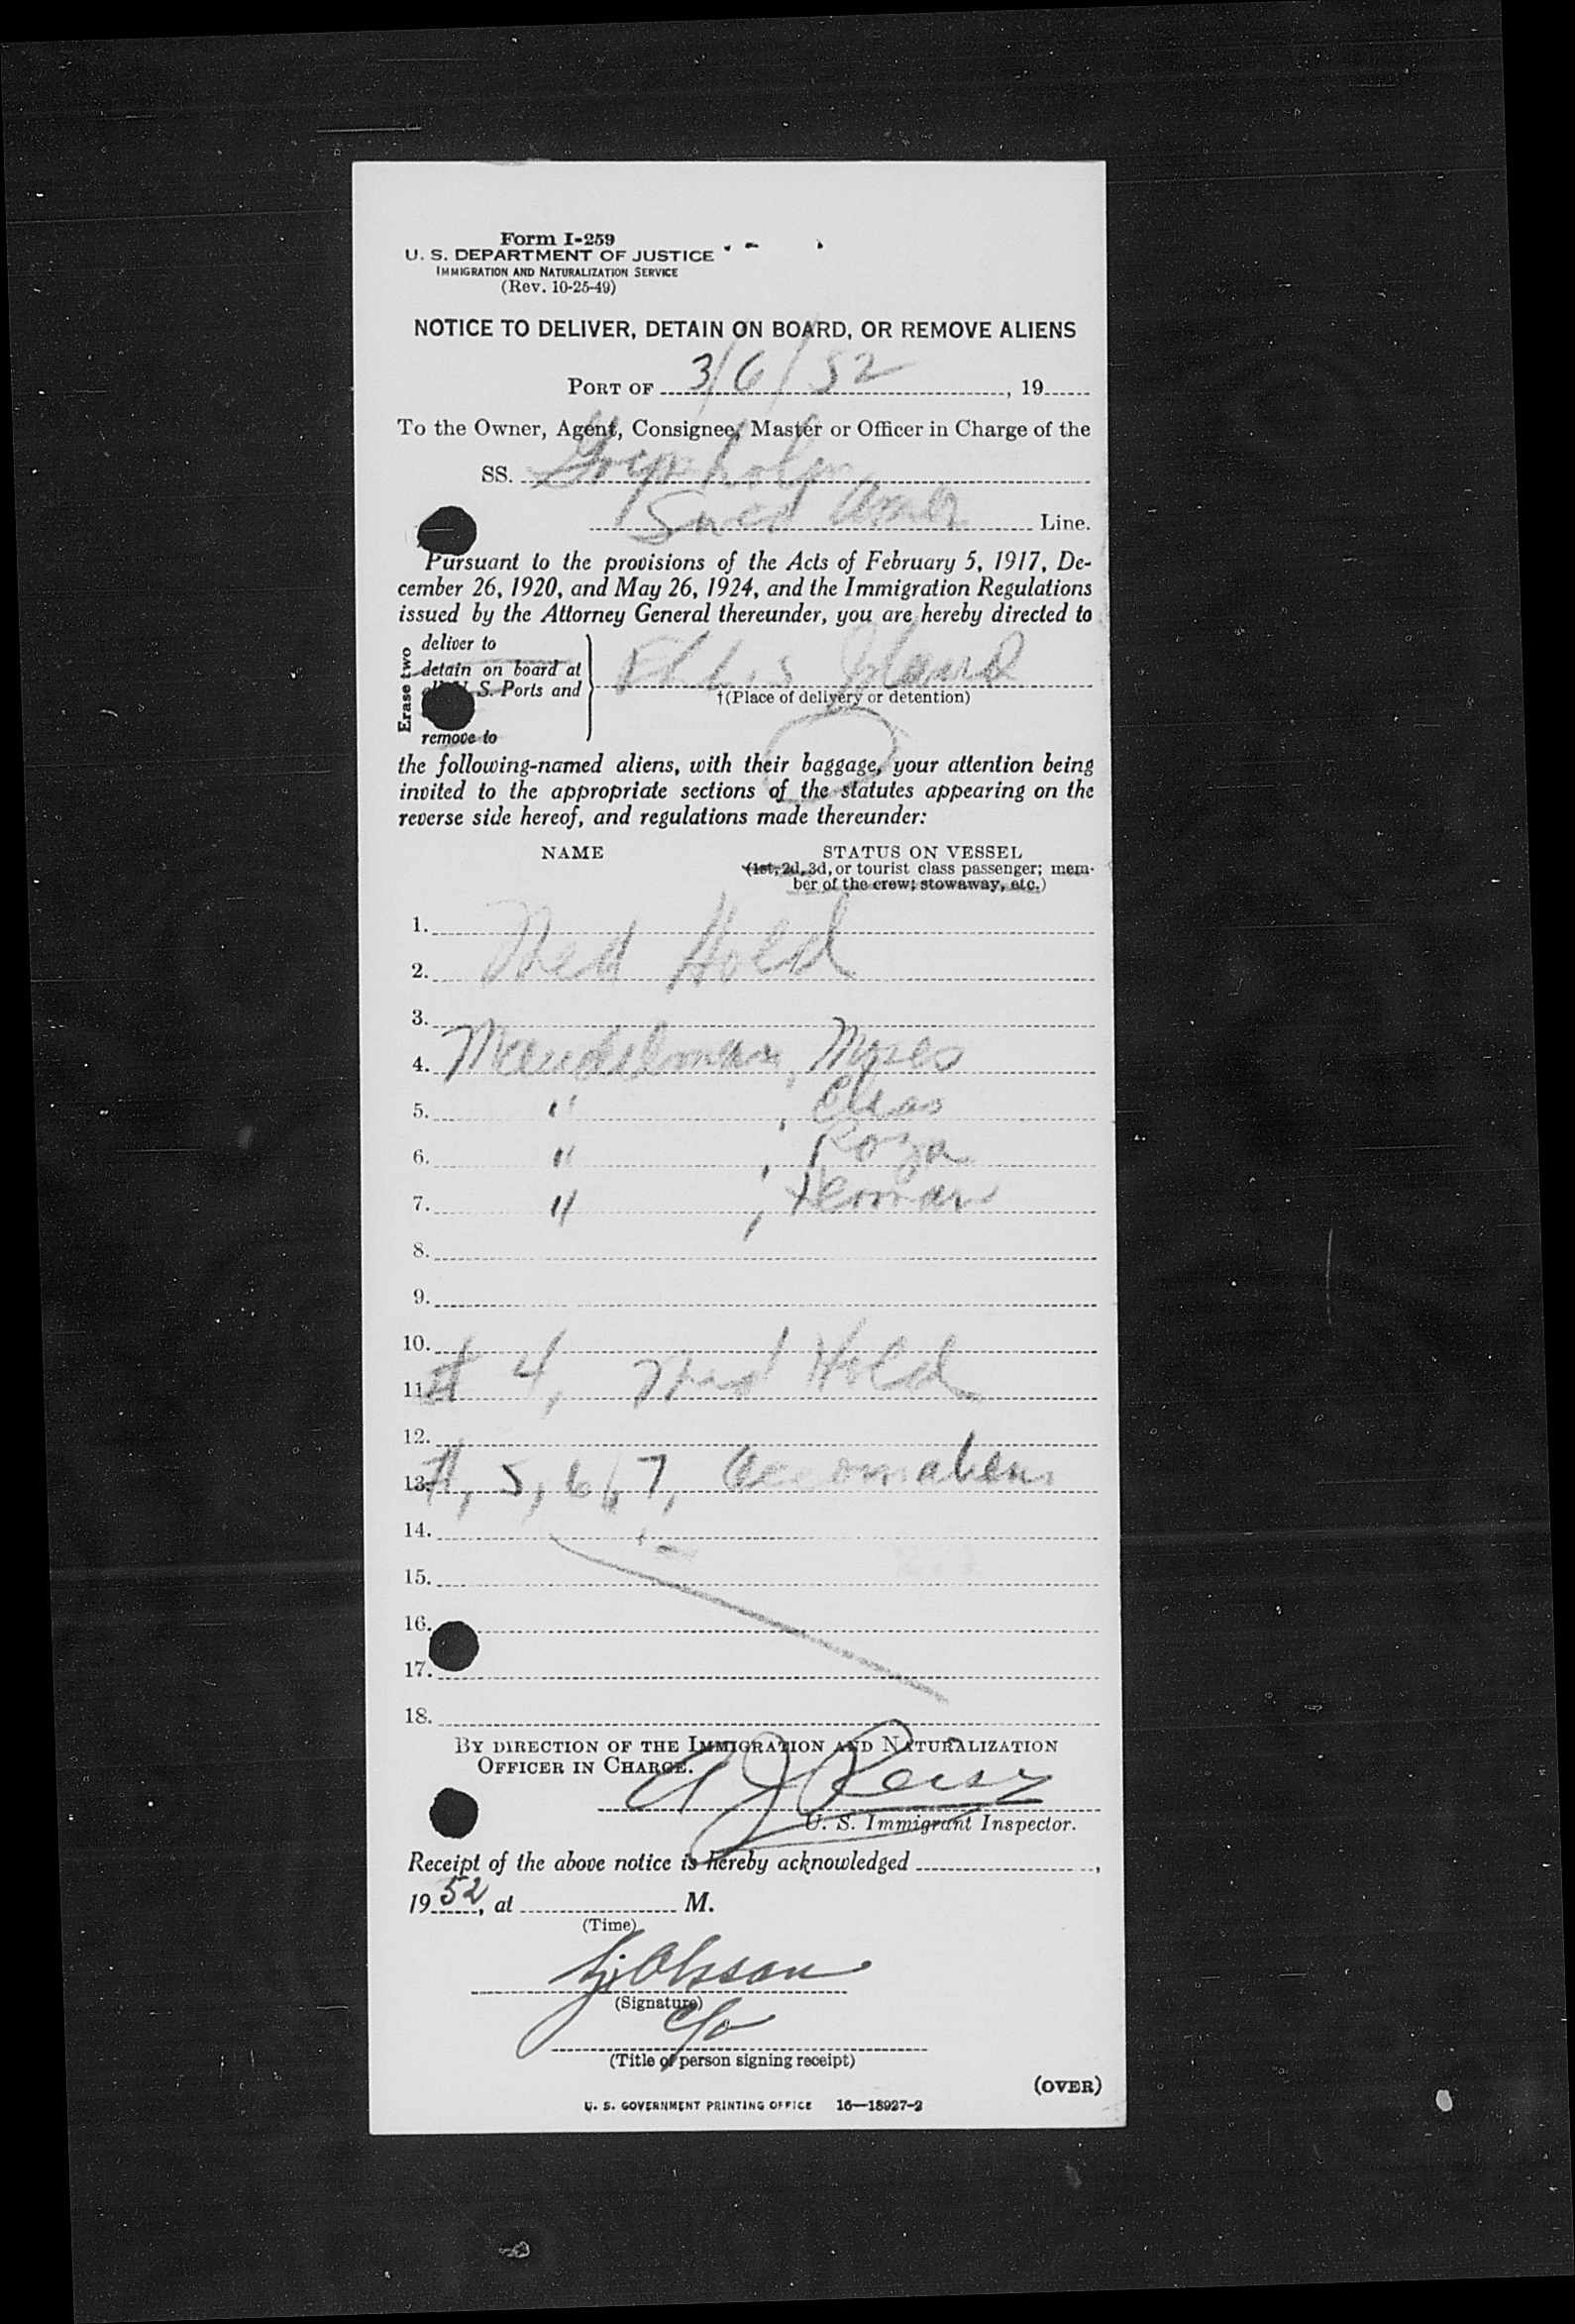 Form I-259
U. S. DEPARTMENT OF JUSTICE
IMMIGRATION AND NATURALIZATION SERVICE
(Rev. 10-25-49)
NOTICE TO DELIVER, DETAIN ON BOARD, OR REMOVE ALIENS
PORT OF 3/6/52, 19
To the Owner, Agent, Consignee, Master or Officer in Charge of the
SS. Gripsholm
Swed Amer Line.
Pursuant to the provisions of the Acts of February 5, 1917, De-
cember 26, 1920, and May 26, 1924, and the Immigration Regulations
issued by the Attorney General thereunder, you are hereby directed to
Erase two
deliver to
detain on board at
S. Ports and
remove to
Ellis Island
†(Place of delivery or detention)
the following-named aliens, with their baggage, your attention being
invited to the appropriate sections of the statutes appearing on the
reverse side hereof, and regulations made thereunder:
NAME STATUS ON VESSEL
(1st, 2d, 3d, or tourist class passenger; mem-
ber of the crew; stowaway, etc.)
1.
2. Med Hold
3.
4. Mandelman, Moses
5. " , Elias
6. " , Roza
7. " , Herman
8.
9.
10.
11. # 4, Med Hold
12.
13. #, 5, 6, 7, Accom aliens
14.
15.
16.
17.
18.
BY DIRECTION OF THE IMMIGRATION AND NATURALIZATION
OFFICER IN CHARGE.
A J
U. S. Immigrant Inspector.
Receipt of the above notice is hereby acknowledged ,
19 52, at M.
(Time)
Olsson
(Signature)
c/o
(Title of person signing receipt)
(OVER)
U. S. GOVERNMENT PRINTING OFFICE 16—18927-2